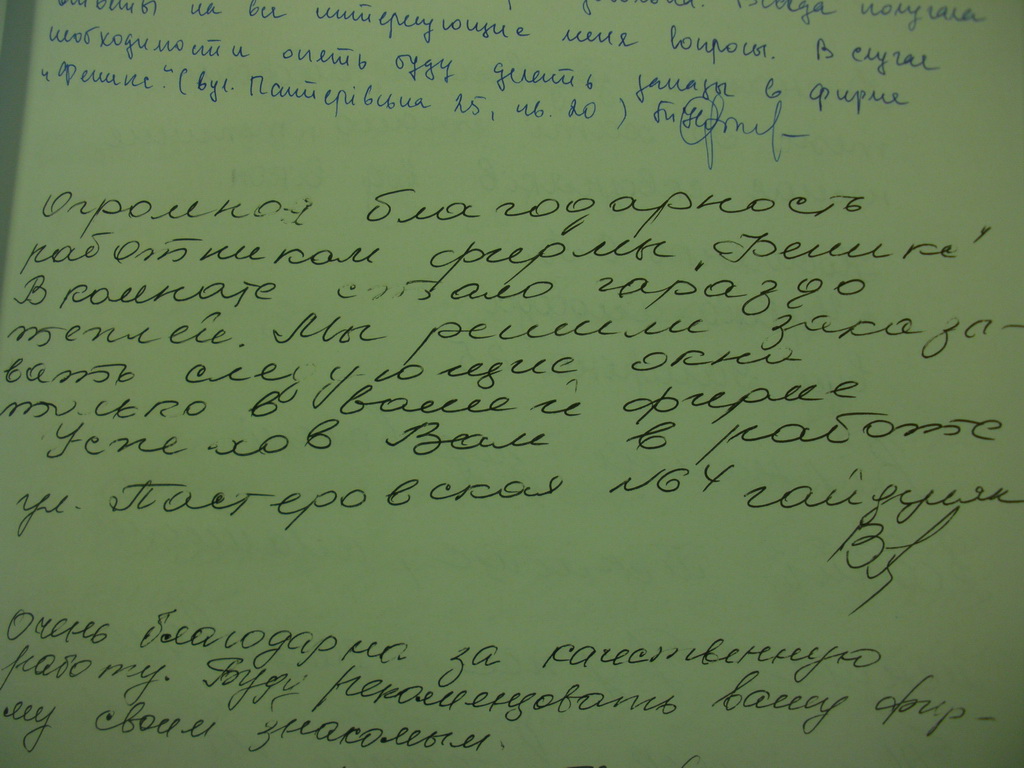 ответы на все интересующие меня вопросы. В случае
необходимости опять буду делать заказы в фирме
"Феникс". (вул. Пастерівська 25, кв. 20)
Огромная благодарность
работникам фирмы "Феникс"
В комнате стало гараздо
теплей. Мы решили заказы-
вать следующие окна
только в вашей фирме
Успехов Вам в работе
ул. Пастеровская №64 Гайдуляк
Очень благодарна за качественную
работу. Буду рекомендовать вашу фир-
му своим знакомым.